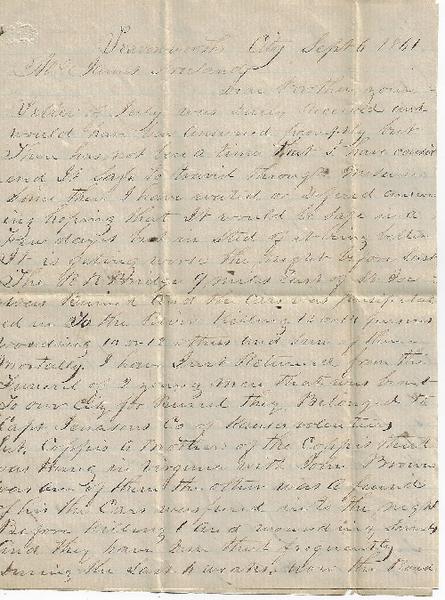 Leavenworth City Sept 6 1861
Mr James
Dear Brother yours
Letter of July was duly received and
would have been answered promptly but
There has not been a time that I have consid
ered It safe to travel through Missouri
since then I have waited or defered answer
ing hoping that It would be safe in a
few days but in sted of it being better
It is getting worse the night before last
The R R Bridge 9 miles East of St Joe
was Burned and the Cars was precipitat
ed in To the River Killing 12 or 14 persons
wounding 10 or 12 others and some of them
mortally I have Just Returned from the
Funeral of 2 young men that was brout
To our City for They Belonged to
Capt Co of Kansas volunteers
Lut. Coppic a Brother of the Coppic that
was Hung in Virginia with John Brown
was one of them the other was a friend
of his the Cars was fired into the night
Before Killing 1 and wounding several
and they have been thus frequently
during the last 4 weeks. were the Road